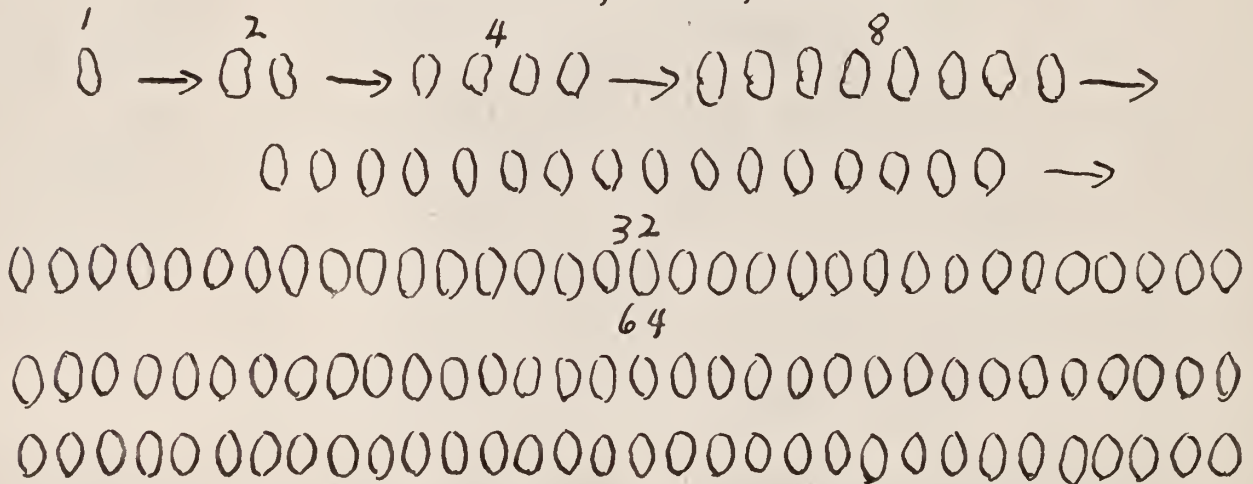 1 2 4 8
32
64